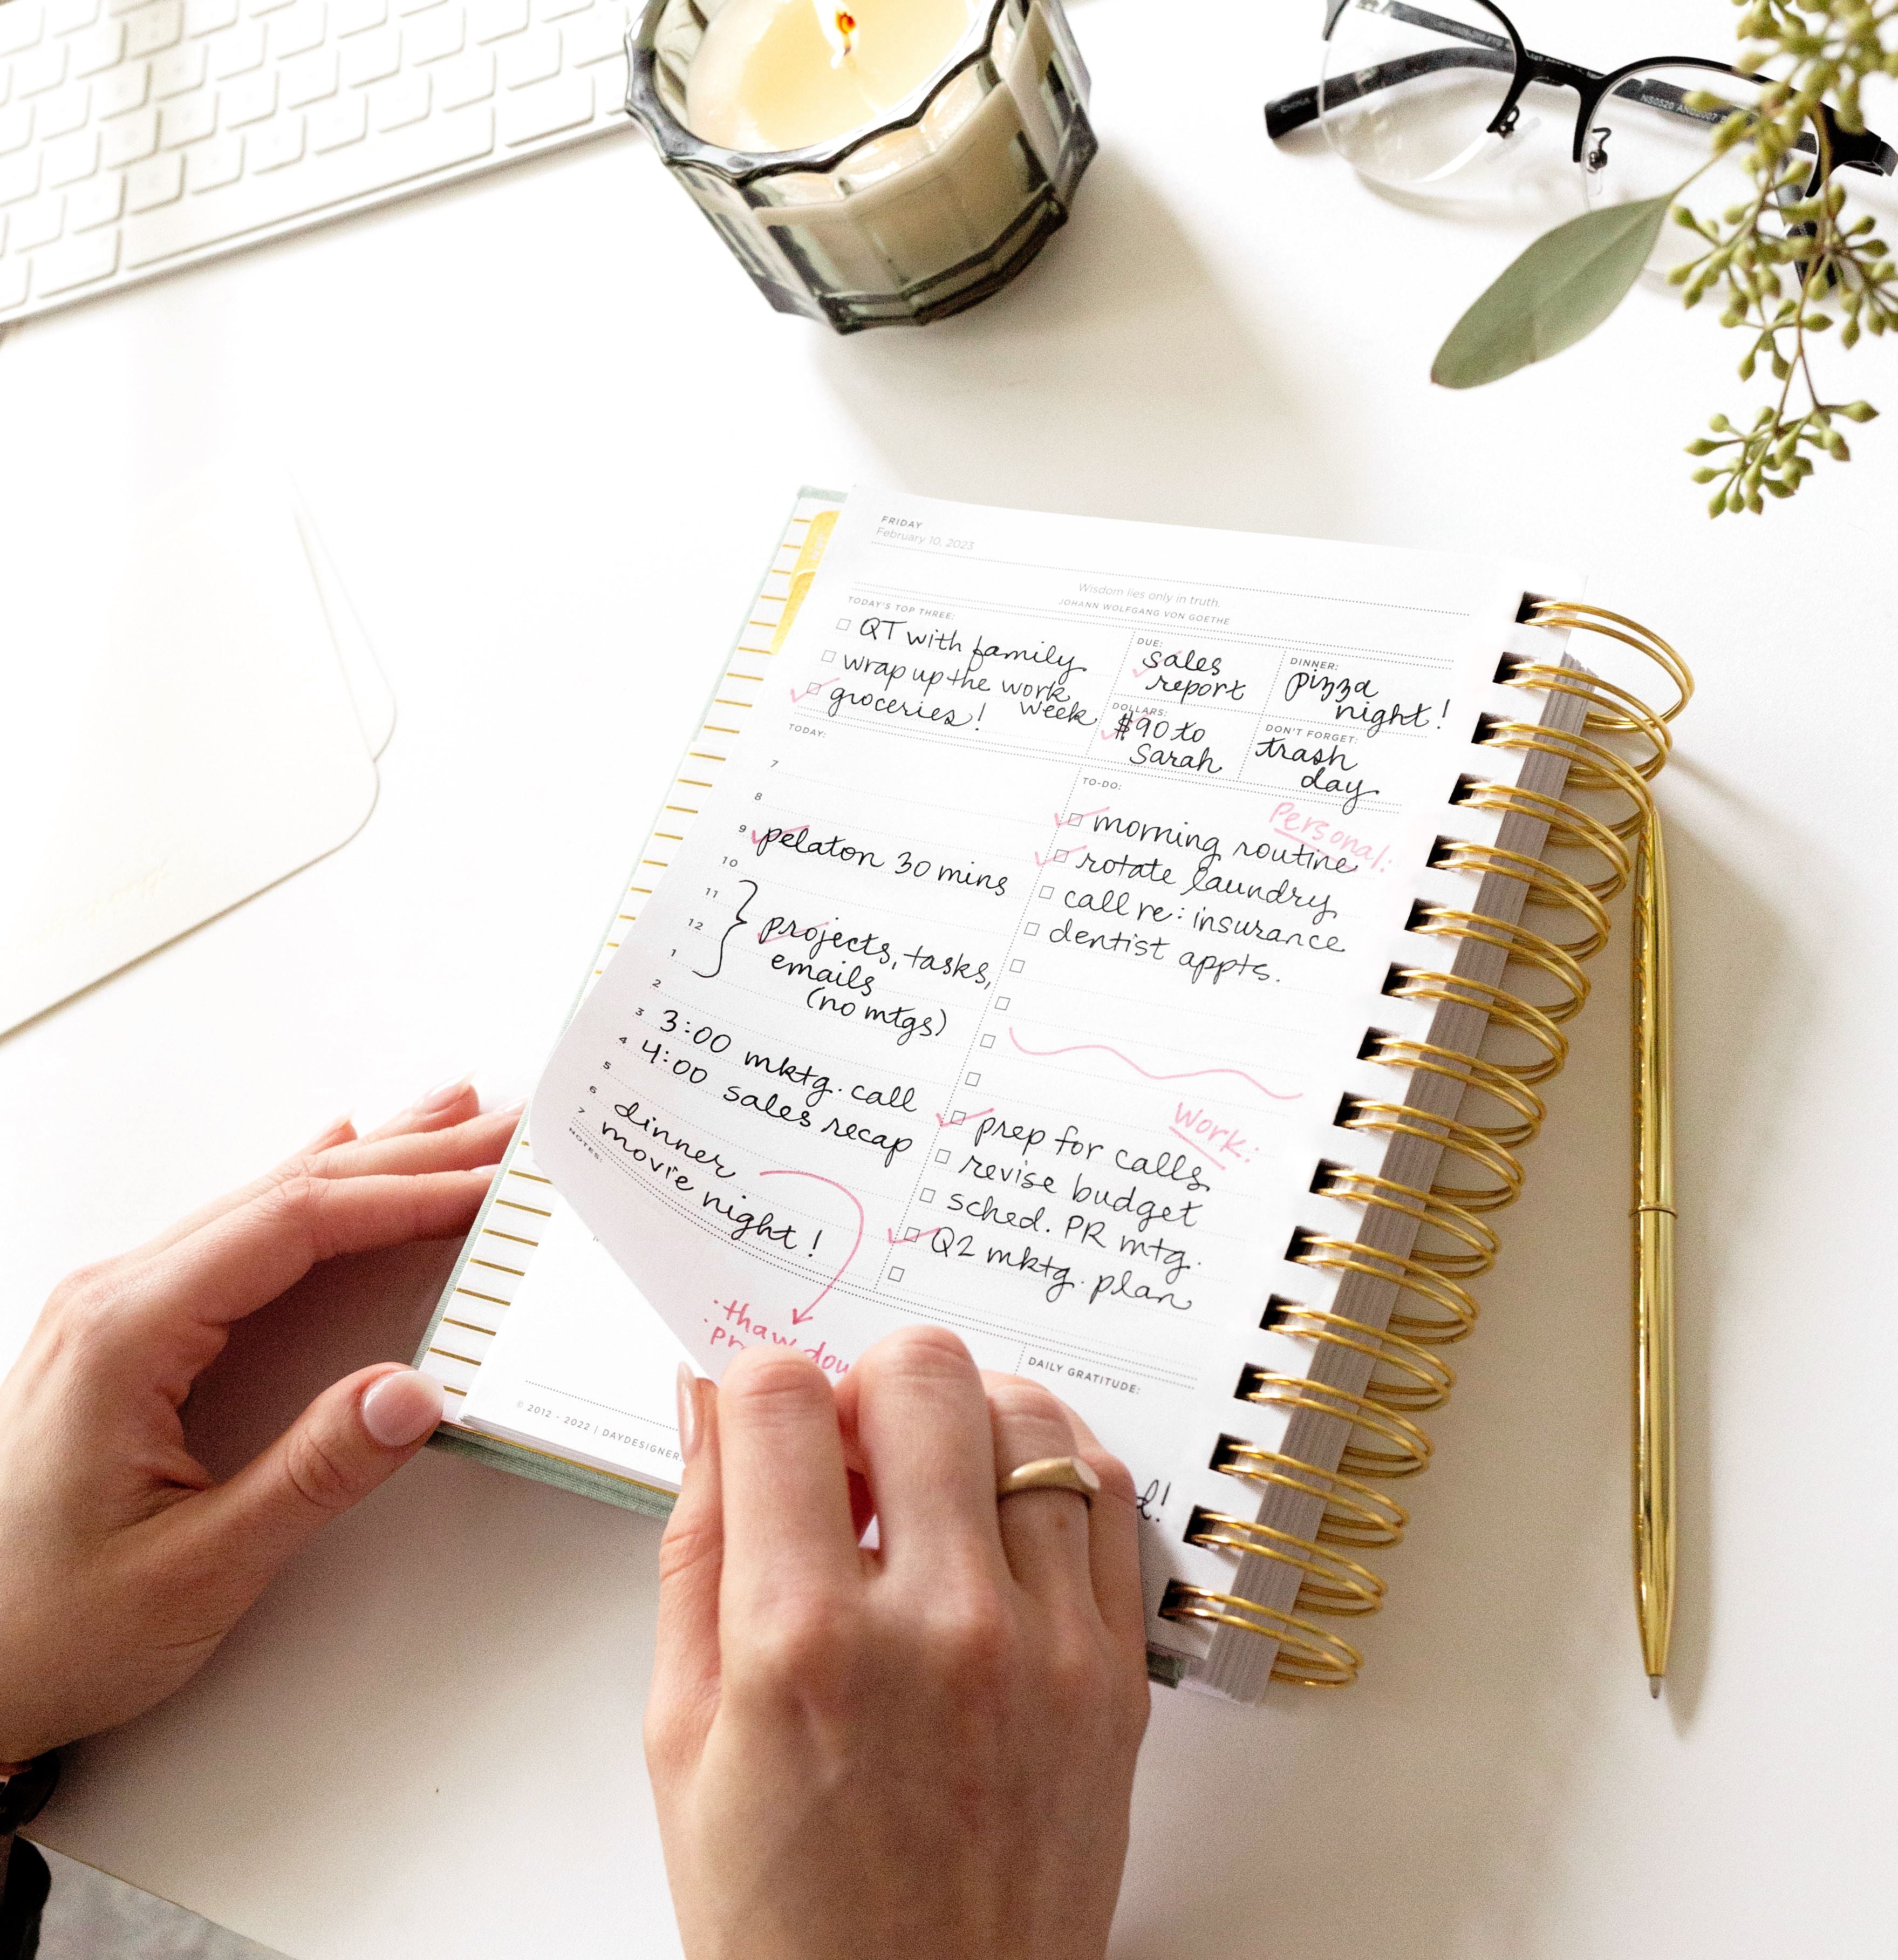 FRIDAY
February 10, 2023
Wisdom lies only in truth.
JOHANN WOLFGANG VON GOETHE
TODAY'S TOP THREE:
QT with family
wrap up the work
week
groceries!
DUE:
sales
report
DINNER:
pizza
night!
DOLLARS:
$90 to
Sarah
DON'T FORGET:
trash
day
TODAY:
7
8
9 pelaton 30 mins
10
11
12 projects, tasks,
emails
1 (no mtgs)
2
3 3:00 mktg. call
4 4:00 sales recap
5
6 dinner
7 movie night!
TO-DO:
Personal:
morning routine
rotate laundry
call re: insurance
dentist appts.
Work:
prep for calls
revise budget
sched. PR mtg.
Q2 mktg. plan
NOTES:
thaw dou
pr
DAILY GRATITUDE:
d!
© 2012 - 2022 | DAYDESIGNER.
CHINA